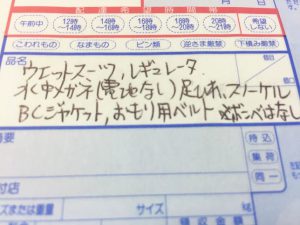 配達希望時間帯
午前中 12時〜14時 14時〜16時 16時〜18時 18時〜20時 20時〜21時 希望しない
こわれもの なまもの ビン類 逆さま厳禁 下積み厳禁
品名
ウエットスーツ, レギュレータ
水中メガネ(電池ない) 足ひれ, スノーケル
BCジャケット, おもり用ベルト ※ボンベはなし
摘要
持込
集荷
同一
付店
サイズまたは重量 サイズ kg